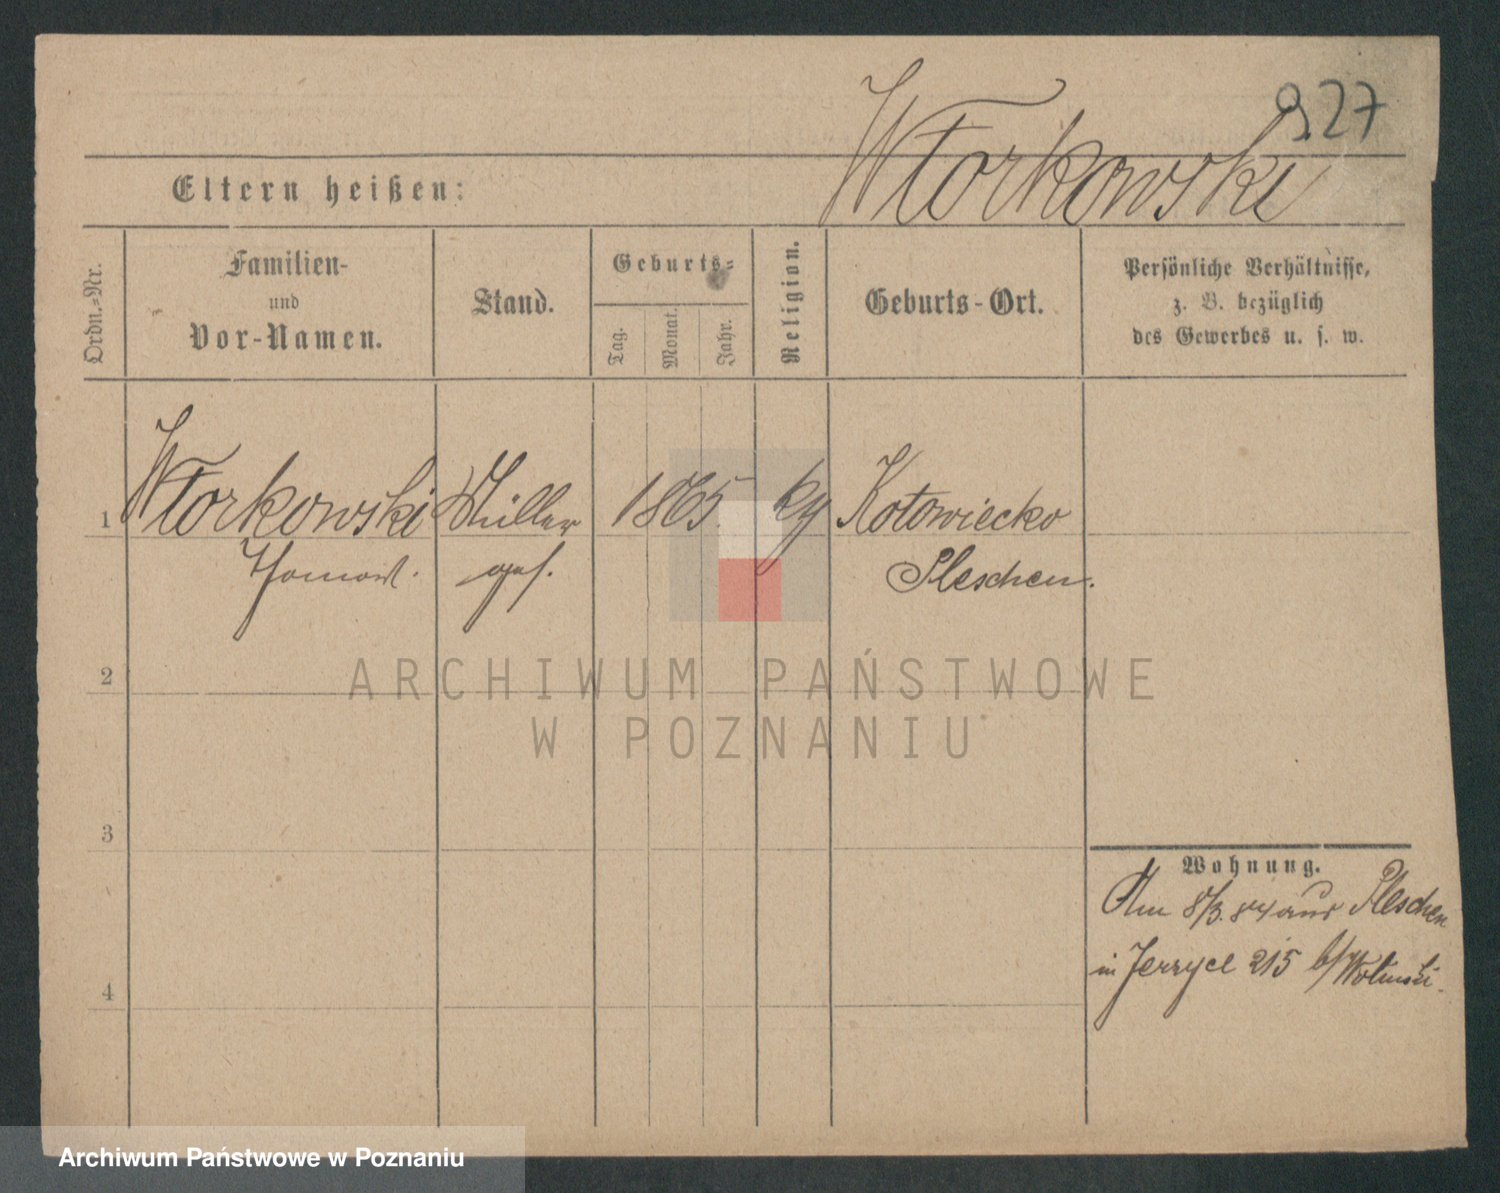 927
Wtorkowski
Eltern heißen:
Ordn.=Nr.
Familien-
und
Vor-Namen.
Stand.
Geburts=
Tag.
Monat.
Jahr.
Religion.
Geburts-Ort.
Persönliche Verhältnisse,
z. B. bezüglich
des Gewerbes u. s. w.
1 Wtorkowski Müller 1865. Kotowiecko
Thomas. ges. Pleschen.
2
ARCHIWUM PAŃSTWOWE
W POZNANIU
3
Wohnung.
Am 8/3. 84 aus Pleschen
in Jerzyce 215 b/
4
Archiwum Państwowe w Poznaniu